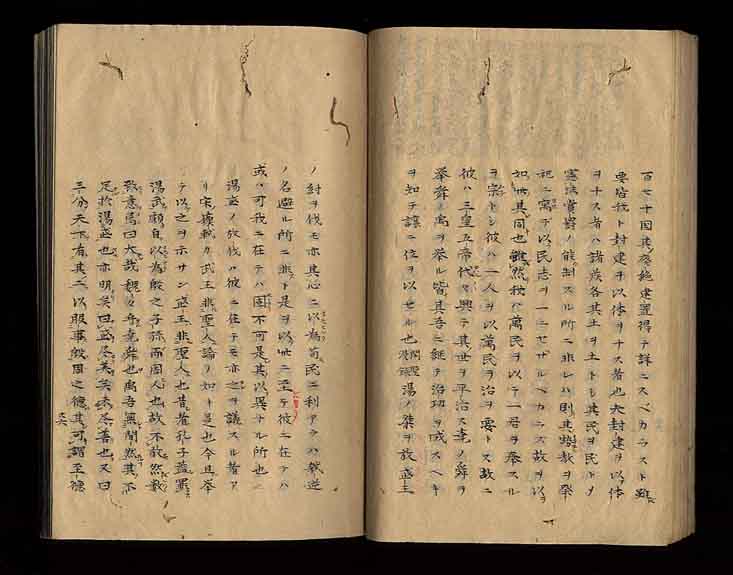 百七十国其廃絶建置得テ詳ニスベカラスト雖
要皆秋ト封建ヲ以体ヲナス者也夫封建ヲ以体
ヲナス者ハ諸侯各其土ヲ土トシ其民ヲ民トす
憲法賞罰ノ能制スル所ニ非レハ則其教ヲ祭
祀ニ寓テ以民志ヲ一ニセザルベカラス故ヲ以
如此其同也雖然秋ハ萬民ヲ以テ一君ヲ奉スル
ヲ宗トシ彼ハ一人ヲ以萬民ヲ治ヲ要トス故ニ
彼ハ三皇五帝代々興テ其世ヲ平治ス堯ノ舜ヲ
挙舜ノ禹ヲ挙ル皆其吾ニ継テ治功ヲ成スヘキ
ヲ知テ譲ニ位ヲ以セル也 湯ノ桀ヲ放武王
ノ紂ヲ伐モ亦其心ニ以為苟民ニ利アラハ弑逆
ノ名避ル所ニ非ト是ヲ以此ニ至テ彼ニ在テハ
或ハ可我ニ在テハ固不可是其以異ナル所也
湯武ノ放伐ハ彼ニ在テモ亦之ヲ議スル者ア
リ 武王非聖人論ノ如キ是也今且挙
テ以之ヲ示サン武王非聖人也昔者孔子蓋罪
湯武顧自以為殷之子孫而周人也故不敢然数
致意焉曰大哉巍々乎堯舜也禹吾無間然其不
足於湯武也亦明矣曰武尽美矣未尽善也又曰
三分天下有其二以服事殷周之徳其可謂至徳